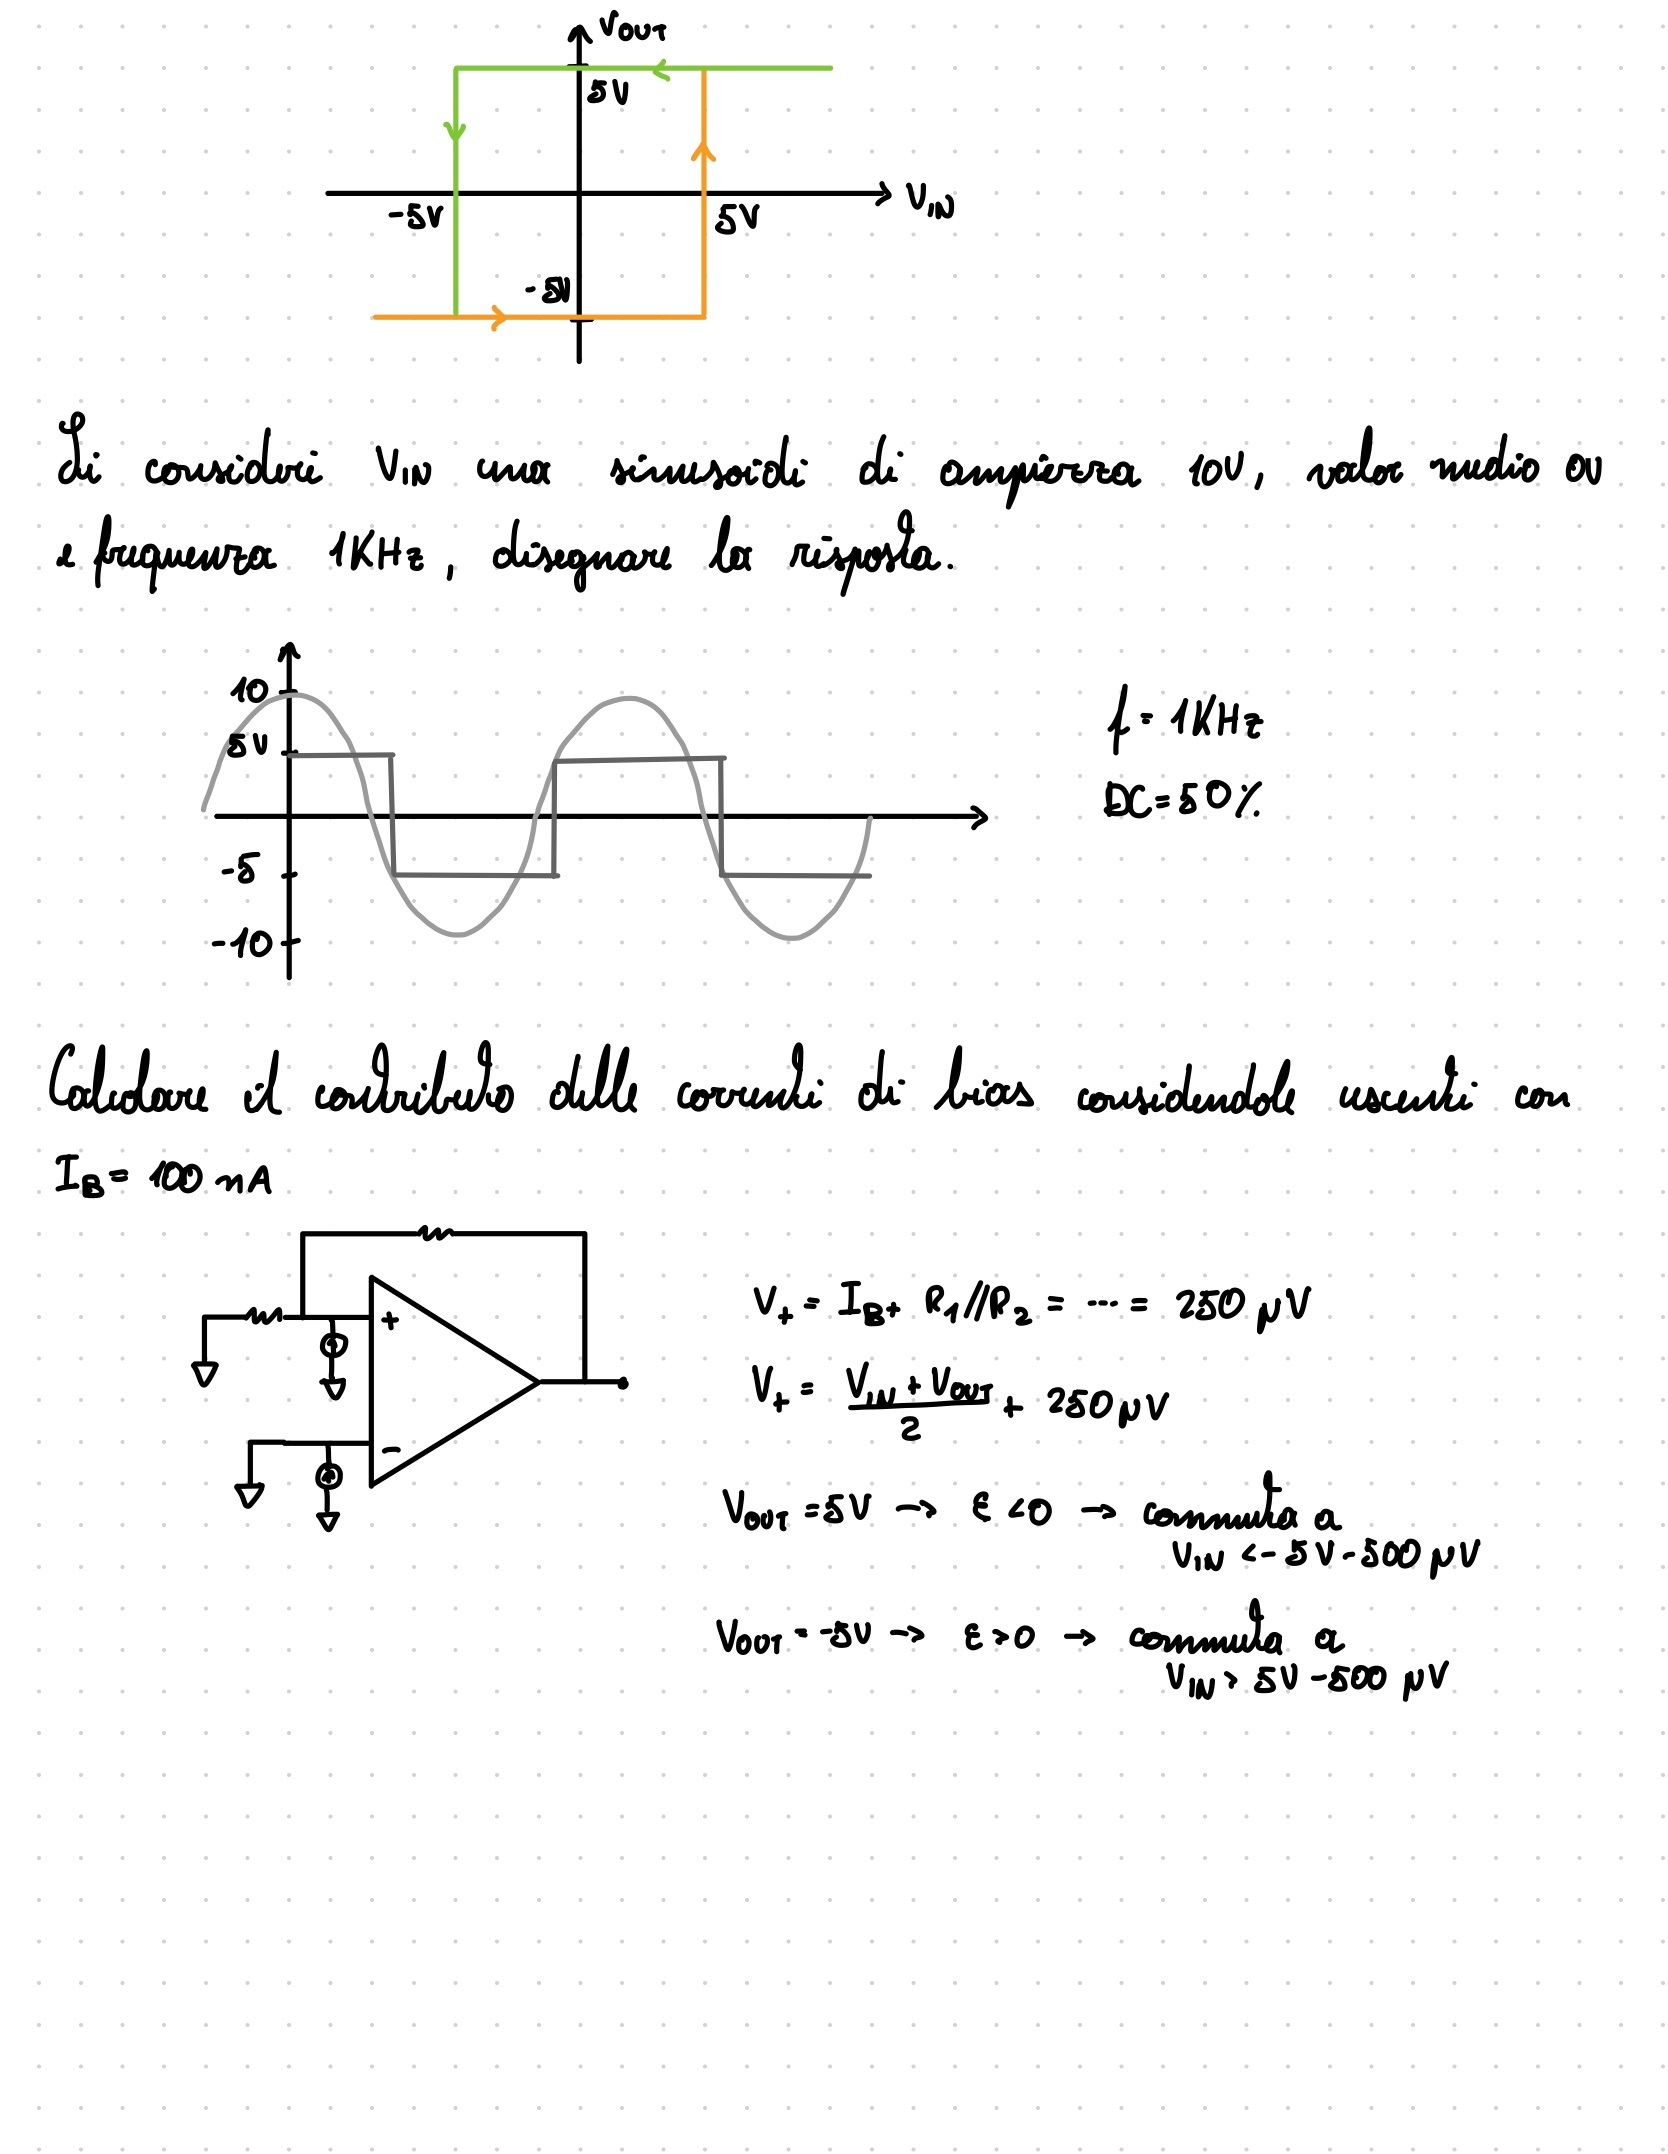 VOUT
5V
VIN
-5V
5V
-5V
Si consideri VIN una sinusoide di ampiezza 10V, valor medio 0V
e frequenza 1KHz, disegnare la risposta.
10
5V
-5
-10
f = 1KHz
DC = 50%
Calcolare il contributo delle correnti di bias considendole uscenti con
IB = 100 nA
+
-
V+ = IB+ R1//R2 = ... = 250 μV
V+ = (VIN + VOUT)/2 + 250 μV
VOUT = 5V → ε < 0 → commuta a
VIN < -5V - 500 μV
VOUT = -5V → ε > 0 → commuta a
VIN > 5V - 500 μV